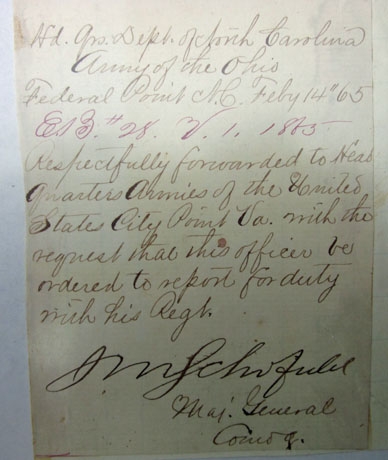 Hd. Qrs. Dept. of North Carolina
Army of the Ohio
Federal Point N.C. Feby 14" 65
E.B. " 28. V. 1. 1865
Respectfully forwarded to Head
Quarters Armies of the United
States City Point Va. with the
request that this officer be
ordered to report for duty
with his Regt.
J M Schofield
Maj. General
Comd'g.